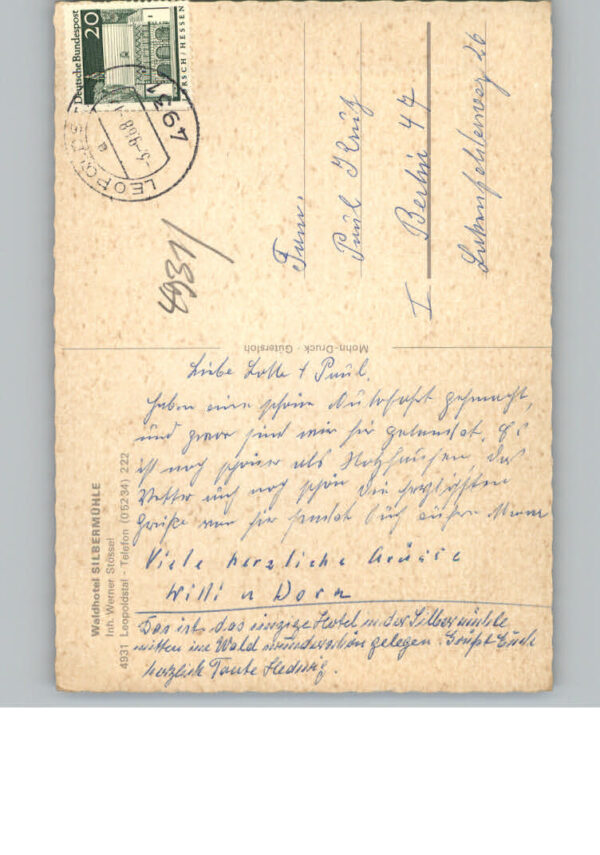 Deutsche Bundespost
20
RSCH/HESSEN
4931
LEOPO
-5.-9.68-
a
4931
Fam.
Paul Krug
I Berlin 47
26
Mohn-Druck · Gütersloh
Waldhotel SILBERMÜHLE
Inh. Werner Stössel
4931 Leopoldstal - Telefon (05234) 222
Liebe Lotte + Paul.
Haben eine schöne Autofahrt gemacht,
und zwar sind wir hier gelandet. Es
ist noch schöner als Holzhausen das
Wetter auch noch schön Die herzlichsten
Grüße von hier sendet Euch
Viele herzliche Grüsse
Willi u Dora
Das ist das einzige Hotel in der Silbermühle
mitten im Wald wunderschön gelegen. Grüßt Euch
herzlich Tante Hedwig.